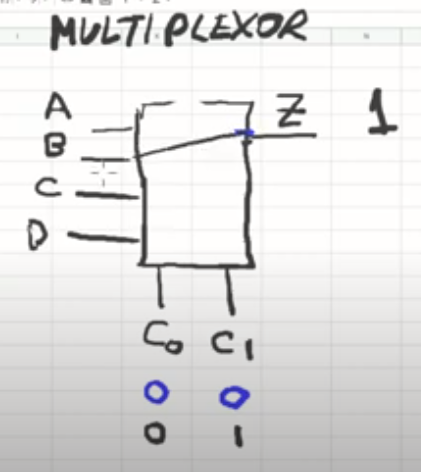 MULTIPLEXOR
A
Z 1
B
C
D
C0 C1
0 0
0 1